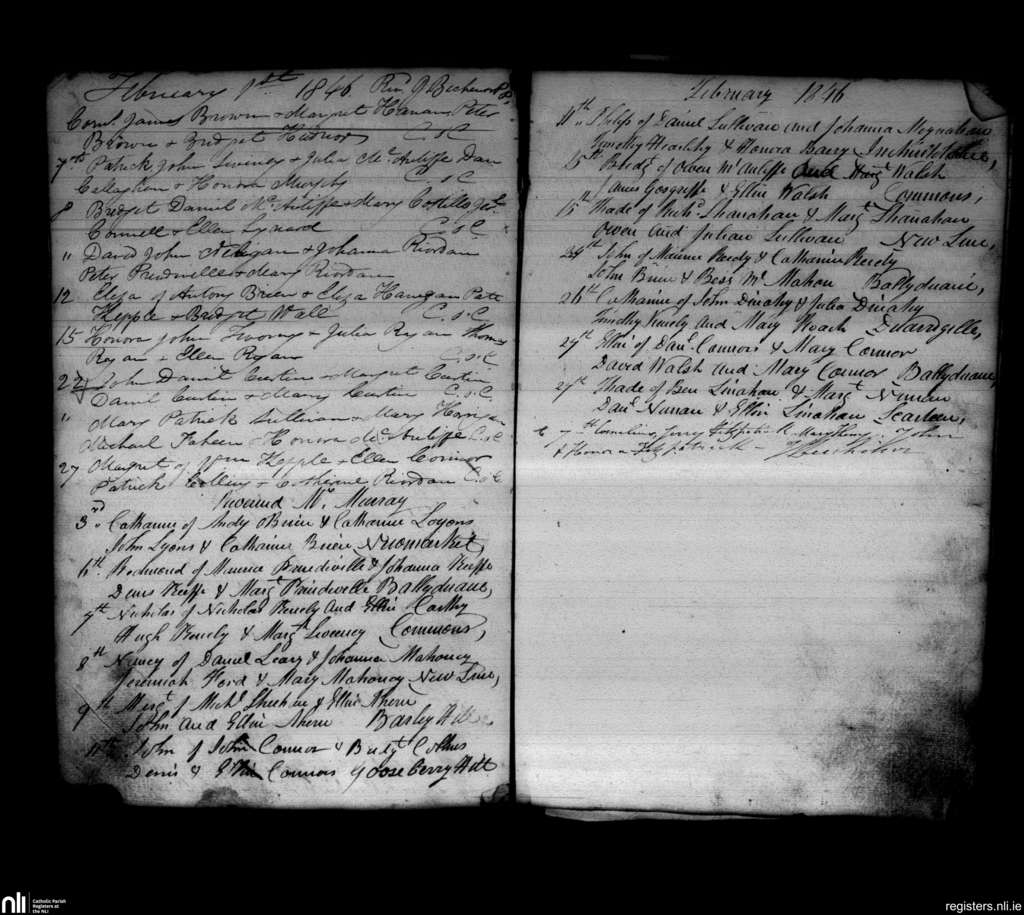 February 1st 1846 Revd
Cornl. James Brown & Margret Hanan Peter
Brown & Bridget C. o C
7th Patrick John Sweney & Julia Mc Auliffe Dan
Callaghan & Honora Murphy C o C
8 Bridget Daniel Mc Auliffe & Mary Costillo
Connell & Ellen Lynard C. o C
" David John & Johanna Riordan
Peter Prendville & Mary Riordan
12 Eliza of Antony Brien & Eliza Hanigan Patt
Hepple & Bridget Wall C. o C
15 Honora John & Julia Ryan Thomas
Ryan & Ellen Ryan C. o C
22 John Daniel Curtin & Margret Curtin
Daniel Curtin & Marry Curtin C. o C.
" Mary Patrick Sullivan & Mary Horrigan
Michael & Honora Mc Auliffe C. o C
27 Margret of Wm Hepple & Ellen Connor
Patrick Collins & Catherine Riordan C. o C
Revernd Mr. Murray
3rd " Catharine of Andy OBrien & Catharine Loyons
John Lyons & Catharine Brien Newmarket,
6th. Redmond of Maurice Prendiville & Johanna Keeffe
Denis Keeffe & Margt Prindiville Ballyduane,
7th Nicholas of Nicholas Kenely and Ellin Carthy
Hugh Kenely & Margt Sweeney Commons,
8th Nancy of Daniel Leary & Johanna Mahoney
Jeremiah Ford & Mary Mahoney New Line,
9th Margt of Michl Sheehan & Ellin Ahern
John and Ellin Ahern Barley Hill
11th. John of John Connor & Bridgt Collins
Denis & Ellin Connors Goose berry Hill
February 1846
11th " Philip of Daniel Sullivan and Johanna
Timothy Hearlihy & Honora Barry
15th Bridgt of Owen Mc Auliffe and Margt Walsh
James & Ellin Walsh Commons,
15th Thade of Michl Shanahan & Margt Shanahan
Owen and Julian Sullivan New Line,
24th John of Maurice Reedy & Catharine Reedy
John Brien & Bess Mc Mahon Ballyduane,
26th Catharine of John Dinahy & Julia Dinahy
Timothy Kenely and Mary Roach
27th of Danl. Connors & Mary Connor
David Walsh and Mary Connor Ballyduane
27th Thade of Ben Linahan & Margt Nunan
Danl Nunan & Ellin Linahan Scarteen,
7th Cornelius, Jerry Fitzpatrick John
& Honora Fitzpatrick
nli
Catholic Parish
Registers at
the NLI
registers.nli.ie